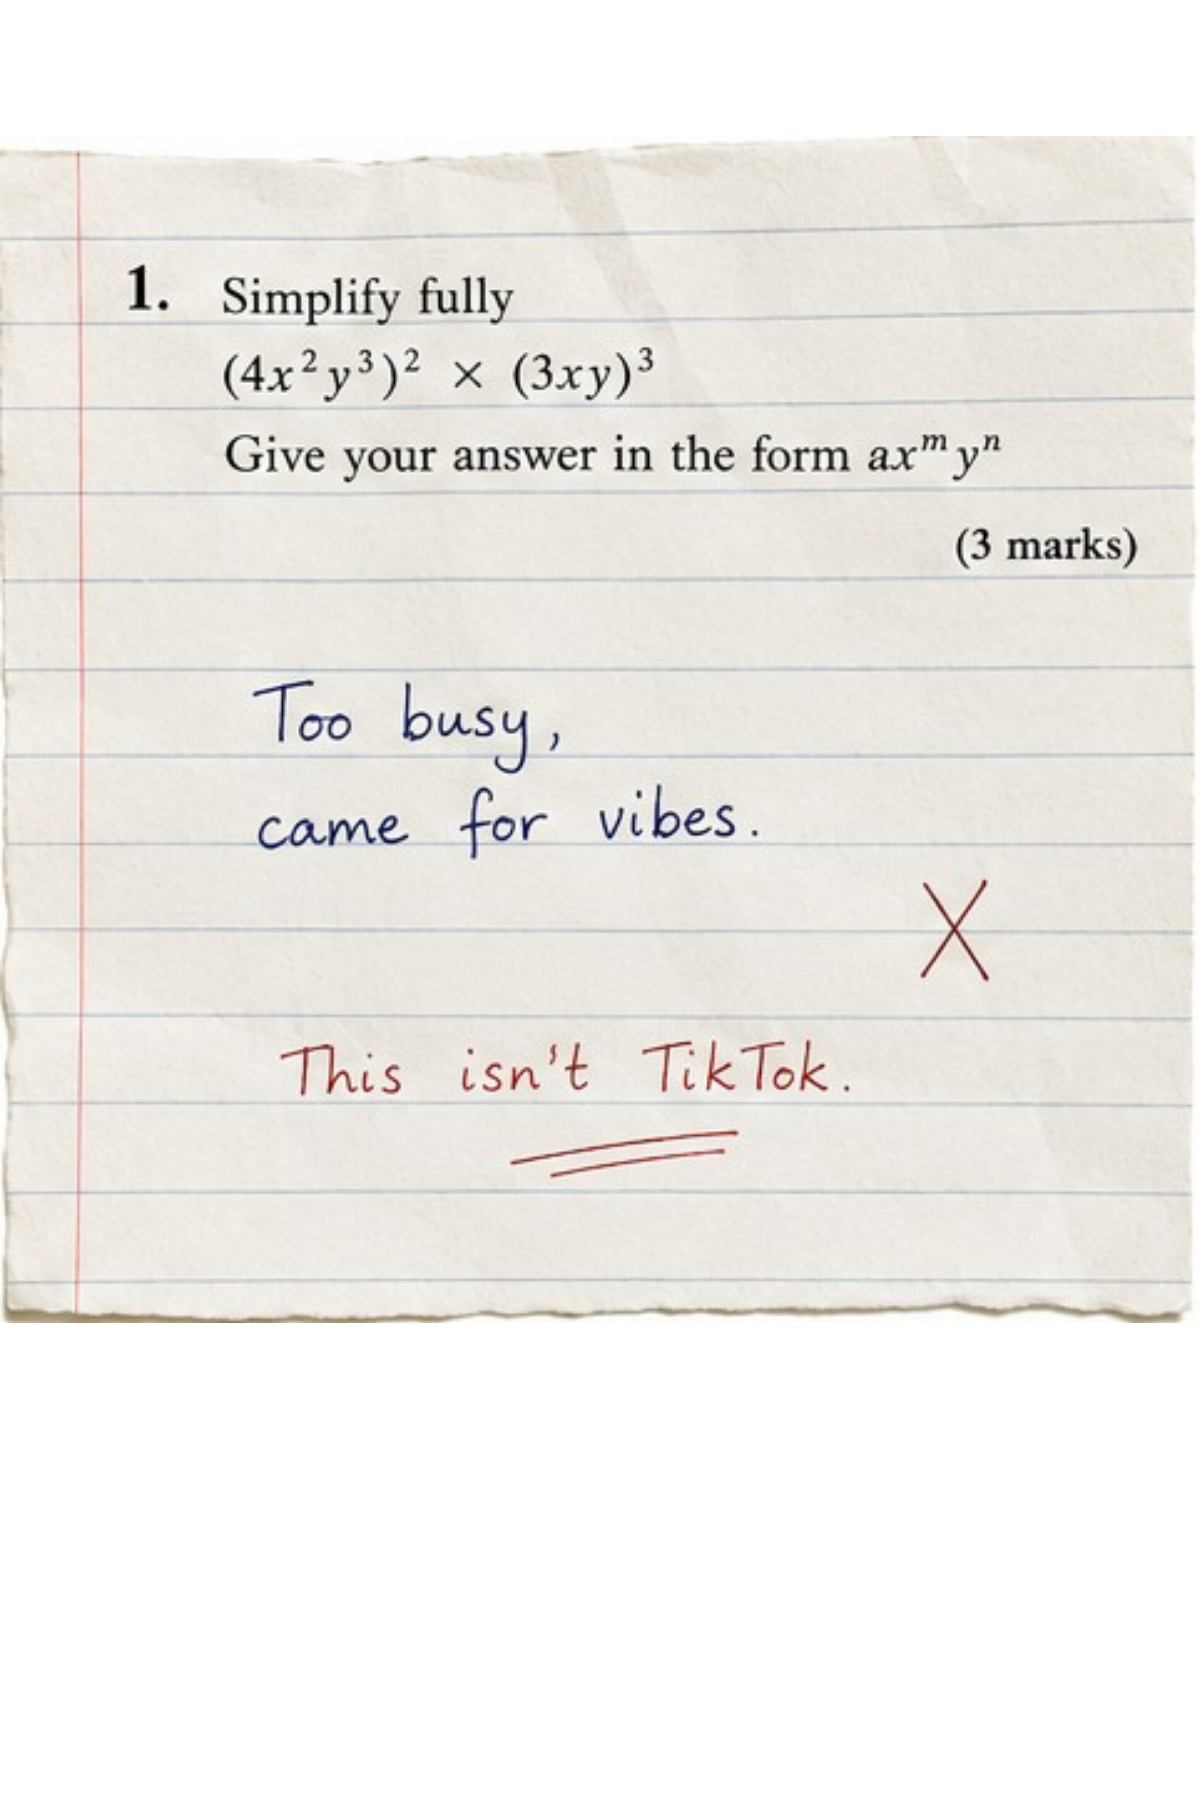 1. Simplify fully
(4x²y³)² × (3xy)³
Give your answer in the form axᵐyⁿ
(3 marks)
Too busy,
came for vibes.
X
This isn't TikTok.